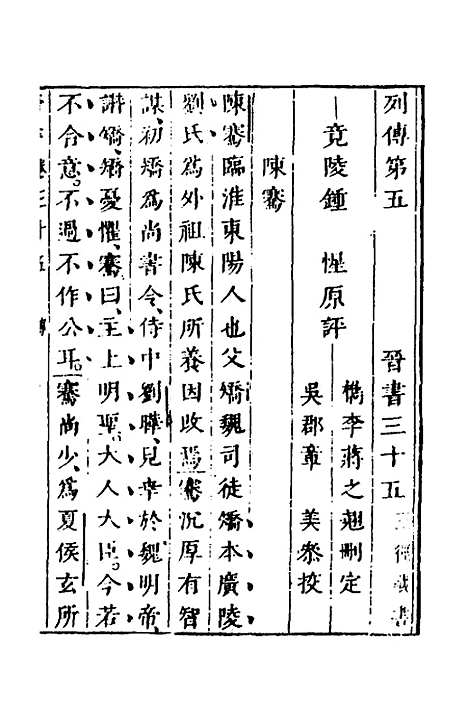 列傳第五　晉書三十五
檇李蔣之翹刪定
竟陵鍾　惺原評
吳郡章　美參挍
陳騫
陳騫臨淮東陽人也父矯魏司徒矯本廣陵
劉氏爲外祖陳氏所養因改焉騫沉厚有智
謀初矯爲尚書令侍中劉曄見幸於魏明帝
譖矯矯憂懼騫曰主上明聖大人大臣今若
不合意不過不作公耳騫尚少爲夏侯玄所